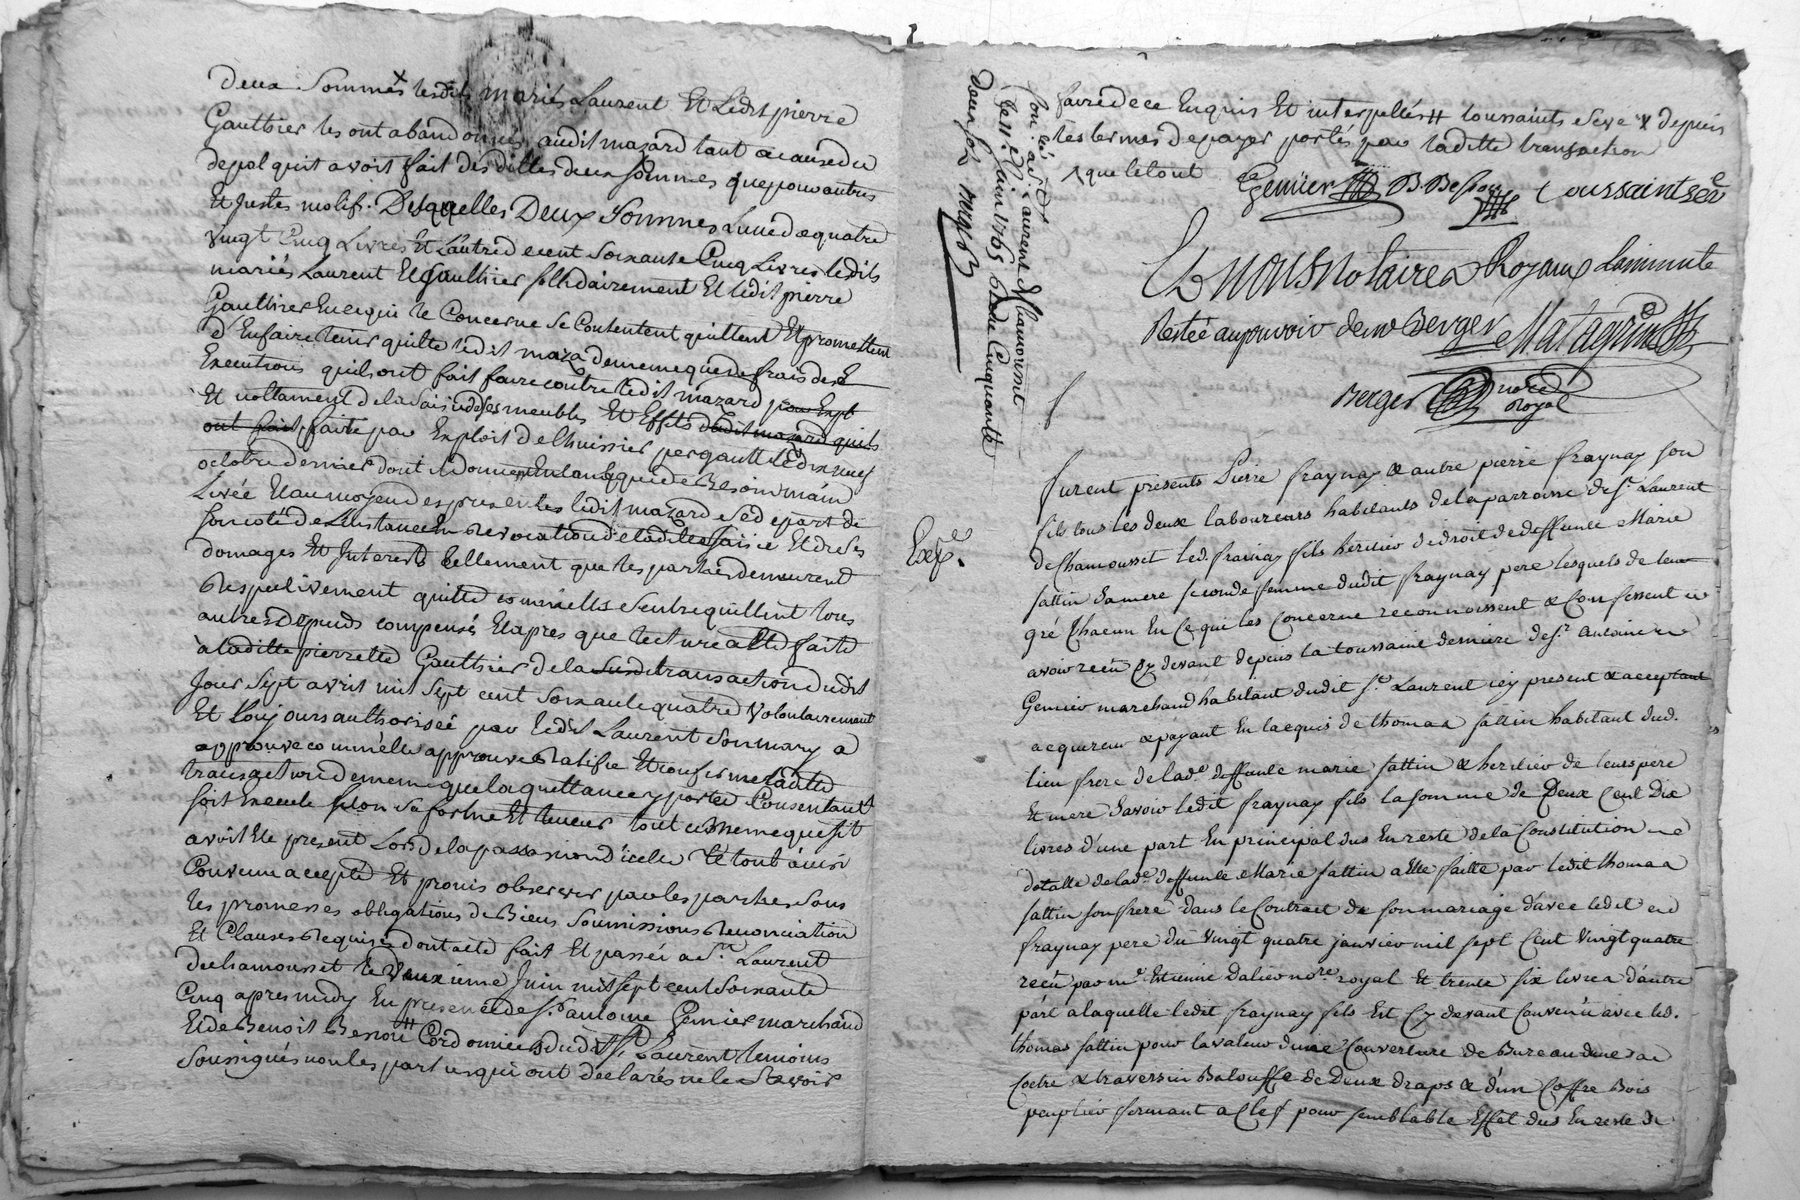 deux Sommes lesdits mariés Laurent Et Ledit pierre
Gauthier les ont abandonnées audit mazard tant a cause du
depot quit avoit fait des dittes deux sommes que pour autres
Et Justes motif. Desquelles Deux Sommes Lune de quatre
vingt Cinq Livres Et Lautre de cent Soixante Cinq Livres ledits
mariés Laurent Et Gauthier sollidairement Et ledit pierre
Gauthier En ce qui le Concerne Se Contentent quittent Et promettent
d'En faire tenir quitte ledit mazard de meme que de frais des
Executions quils ont fait faire contre ledit mazard pour Expl
Et nottament de la Saisie de Ses meubles Et Effets dudit mazard quils
ont fait faite par Exploit de Lhuissier pergault le dix neuf
octobre dernier dont il donne Enlant que de Besoin main
Levée Et au moyen des presentes ledit mazard se depart de
Son coté de Linstance En revocation de laditte Saisie Et de Ses
domages Et Interests tellement que les parties demeurent
respectivement quittes comme elles Sentrequittent tous
autres depends compensés Et apres que lecture a Eté faite
a laditte pierrette Gauthier de la Susd. transaction dudit
Jour Sept avril mil Sept cent Soixante quatre volontairement
Et toujours authorisée par ledit Laurent Son mary a
approuvé comm'elle approuve ratifie Et confirme laditte
transaction de meme que la quittance y portée Consentant
soit Executé selon Sa forme Et teneur tout ainsi meme que sil
avoit Eté present Lors de la passation d'icelle Le tout ainsi
Convenu accepté Et promis observer par les parties Sous
les promesses obligations de Biens Soumissions Renonciation
Et Clauses Requises dont acte fait Et passé a St. Laurent
de chamousset le deuxieme Juin mil Sept cent Soixante
Cinq apres midy En presence de Sr. antoine Genier marchand
Et de Benoit Besson Cordonnier dudit St. Laurent temoins
Soussignés non les parties qui ont declarés ne le Scavoir
faire de ce Enquis Et interpellés toussaints seve depuis
les termes de payer portés par laditte transaction
que le tout
Genier B Besson toussaint seve
Et nous notaires Royaux la minute
Restée au pouvoir de me Berger Matagrin
Berger nore Royal
Con lé a St. Laurent de chamousset
le 11e. Juin 1765 Reçu Cinquante
deux sols
Berger
Exp.
furent presents Pierre fraynay & autre pierre fraynay son
fils tous les deux laboureurs habitants de la parroisse de St. Laurent
de Chamousset led. frainay fils heritier de droit de deffunte Marie
fattin Sa mere seconde femme dudit fraynay pere lesquels de leur
gré Chacun En ce qui les Concerne reconnoissent & Confessent
avoir reçu Cy devant depuis la toussaint derniere de Sr. Antoine
Genier marchand habitant dudit St. Laurent icy present & acceptant
acquereur & payant En lacquis de thomas fattin habitant dud.
lieu frere de lade. deffunte marie fattin & heritier de leurs pere
Et mere Savoir ledit fraynay fils la somme de Deux Cent Dix
livres d'une part En principal dus En reste de la Constitution
dotalle de lade. deffunte Marie fattin a Elle faitte par ledit thomas
fattin son frere dans le Contract de son mariage d'avec ledit
fraynay pere du vingt quatre janvier mil sept Cent vingt quatre
reçu par me. Etienne Dalier nore. royal Et trente six livres d'autre
part a laquelle ledit fraynay fils Est Cy devant Convenu avec led.
thomas fattin pour la valeur d'une Couverture de Bureau d'une
Coetre & traversin Balouffe de Deux draps & d'un Coffre Bois
peuplier fermant a Clef pour semblable Effet dus En reste de